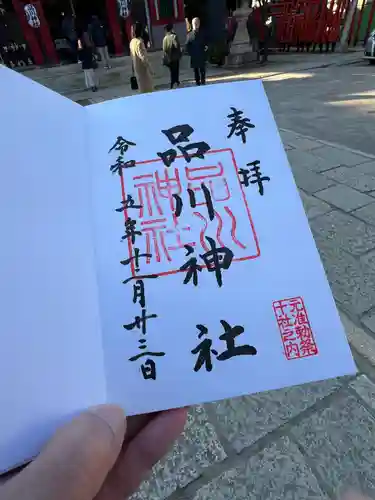 奉拝
品川神社
令和五年十一月廿三日
品川
神社
元准勅祭
十社之内